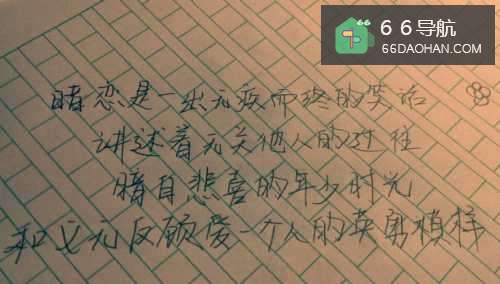 66导航
66DAOHAN.COM
暗恋是一出无疾而终的笑话
讲述着无关他人的过往
暗自悲喜的年少时光
和义无反顾爱一个人的英勇模样